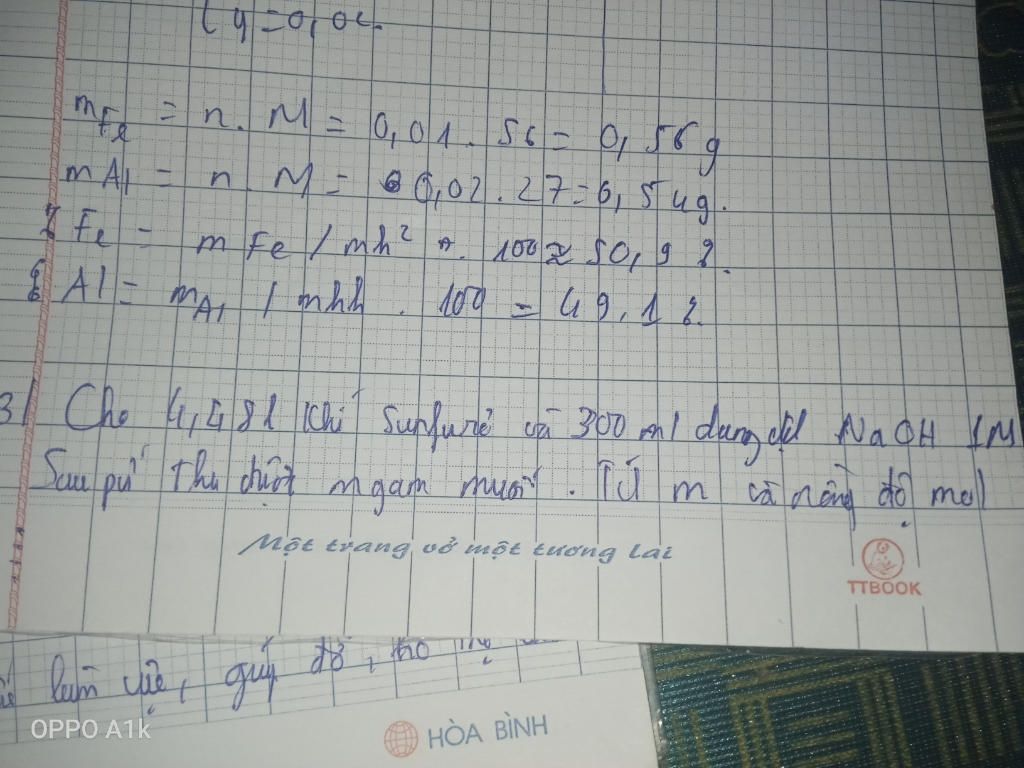 y = 0,02.
mFe = n. M = 0,01. 56 = 0,56g
mAl = n. M = 0,02.27=0,54g.
% Fe = mFe / mh² . 100 ≈ 50,9 %.
% Al = mAl / mhh . 100 = 49,1 %.
3/ Cho 4,48l khí Sunfurơ và 300ml dung dd NaOH 1M
Sau pứ thu được m gam muối. Tí m và nồng độ mol
Một trang vở một tương lai
TTBOOK
làm việc, giúp đỡ,
OPPO A1k
HÒA BÌNH